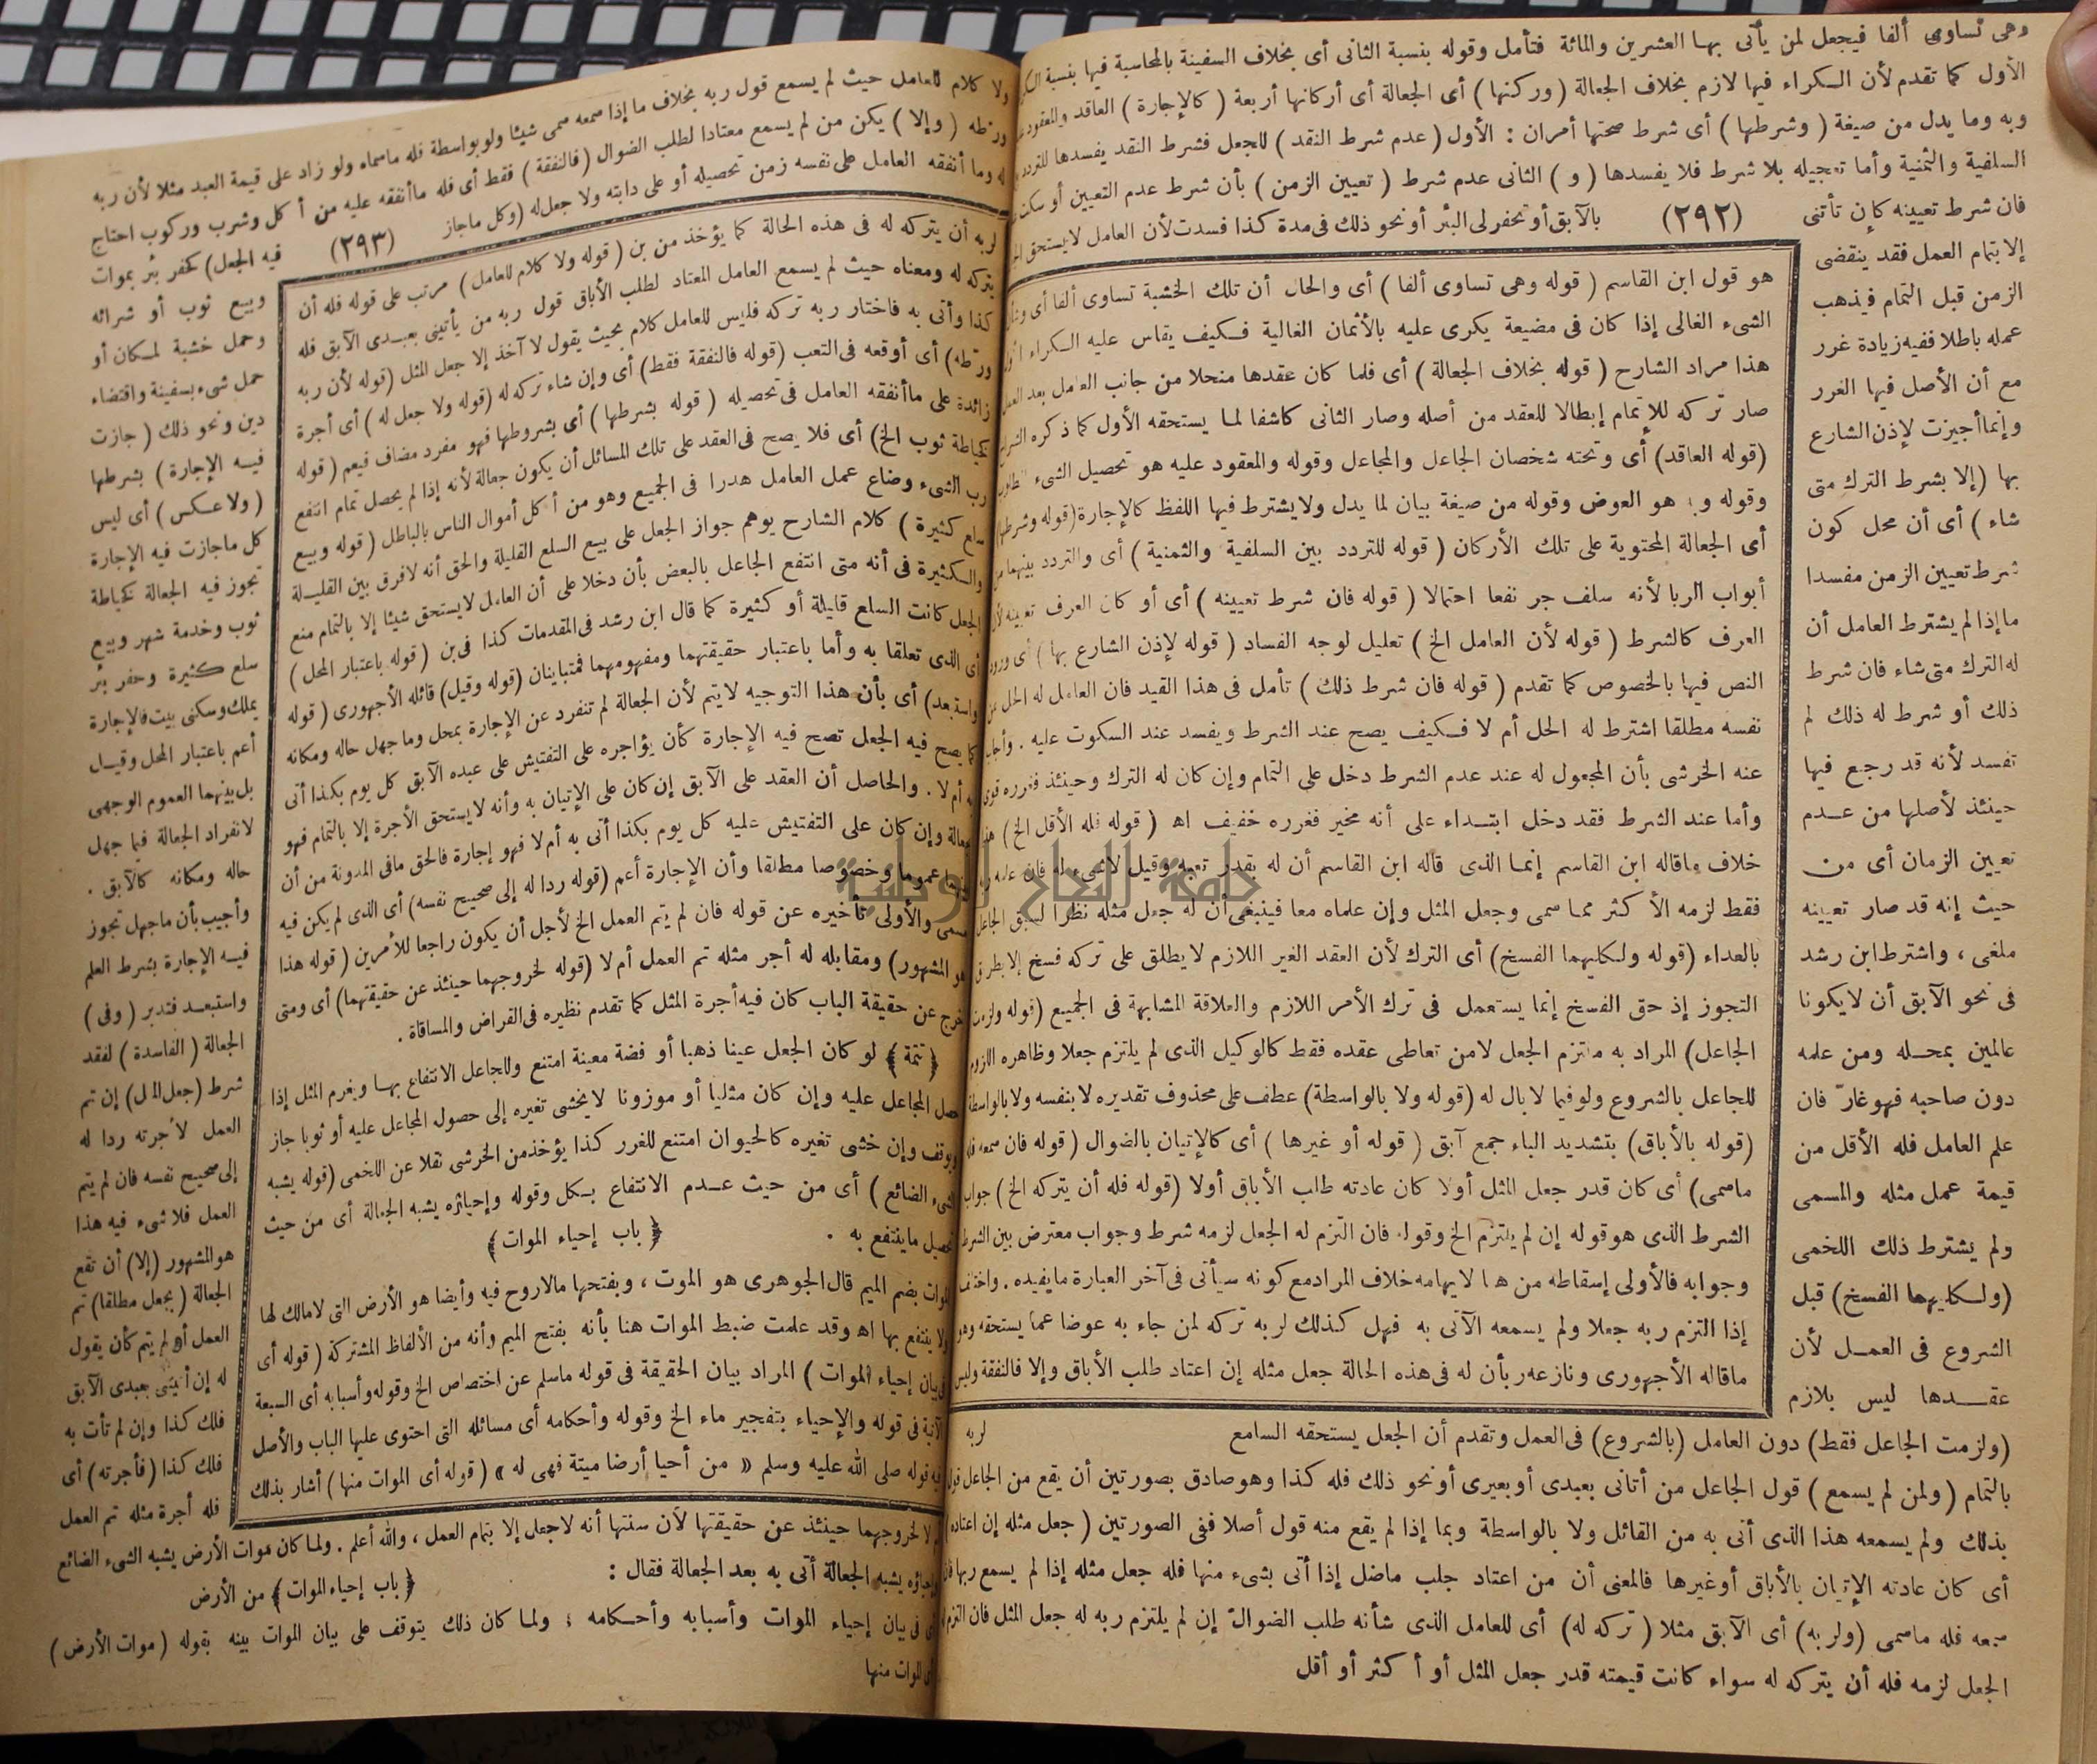 وهى تساوى ألفا فيجعل لمن يأتى بها العشرين والمائة فتأمل وقوله بنسبة الثانى أى بخلاف السفينة بالمحاسبة فيها بنسبة
الأول كما تقدم لأن الكراء فيها لازم بخلاف الجعالة (وركنها) أى الجعالة أى أركانها أربعة (كالإجارة) العاقد والمعقود
وبه وما يدل من صيغة (وشرطها) أى شرط صحتها أمران : الأول (عدم شرط النقد) للجعل فشرط النقد يفسدها للتردد
السلفية والثمنية وأما تعجيله بلا شرط فلا يفسدها (و) الثانى عدم شرط (تعيين الزمن) بأن شرط عدم التعيين أو سكت
فان شرط تعيينه كإن تأتنى (٢٩٢) بالآبق أو تحفر لى البئر أو نحو ذلك فى مدة كذا فسدت لأن العامل لا يستحق
إلا بتمام العمل فقد ينقضى
الزمن قبل التمام فيذهب
عمله باطلا ففيه زيادة غرر
مع أن الأصل فيها الغرر
وإنما أجيزت لإذن الشارع
بها (إلا بشرط الترك متى
شاء) أى أن محل كون
شرط تعيين الزمن مفسدا
ما إذا لم يشترط العامل أن
له الترك متى شاء فان شرط
ذلك أو شرط له ذلك لم
تفسد لأنه قد رجع فيها
حينئذ لأصلها من عدم
تعيين الزمان أى من
حيث إنه قد صار تعيينه
ملغى ، واشترط ابن رشد
فى نحو الآبق أن لا يكونا
عالمين بمحله ومن علمه
دون صاحبه فهو غارّ فان
علم العامل فله الأقل من
قيمة عمل مثله والمسمى
ولم يشترط ذلك اللخمى
(ولكليهما الفسخ) قبل
الشروع فى العمل لأن
عقدها ليس بلازم
هو قول ابن القاسم (قوله وهى تساوى ألفا) أى والحال أن تلك الخشبة تساوى ألفا أى
الشىء الغالى إذا كان فى مضيعة يكرى عليه بالأثمان الغالية فكيف يقاس عليه الكراء
هذا مراد الشارح (قوله بخلاف الجعالة) أى فلما كان عقدها منحلا من جانب العامل بعد
صار تركه للإتمام إبطالا للعقد من أصله وصار الثانى كاشفا لما يستحقه الأول كما ذكره
(قوله العاقد) أى وتحته شخصان الجاعل والمجاعل وقوله والمعقود عليه هو تحصيل الشىء
وقوله وبه هو العوض وقوله من صيغة بيان لما يدل ولا يشترط فيها اللفظ كالإجارة (قوله وشرطها)
أى الجعالة المحتوية على تلك الأركان (قوله للتردد بين السلفية والثمنية) أى والتردد بينهما من
أبواب الربا لأنه سلف جر نفعا احتمالا (قوله فان شرط تعيينه) أى أو كان العرف تعيينه لأن
العرف كالشرط (قوله لأن العامل الخ) تعليل لوجه الفساد (قوله لإذن الشارع بها) أى ورود
النص فيها بالخصوص كما تقدم (قوله فان شرط ذلك) تأمل فى هذا القيد فان العامل له الحل عن
نفسه مطلقا اشترط له الحل أم لا فكيف يصح عند الشرط ويفسد عند السكوت عليه . وأجاب
عنه الخرشى بأن المجعول له عند عدم الشرط دخل على التمام وإن كان له الترك وحينئذ فغرره قوى
وأما عند الشرط فقد دخل ابتداء على أنه مخير فغرره خفيف اه (قوله فله الأقل الخ) هذا
خلاف ماقاله ابن القاسم إنما الذى قاله ابن القاسم أن له بقدر تعبه وقيل لاشىء له فان علمه
فقط لزمه الأكثر مما سمى وجعل المثل وإن علماه معا فينبغى أن له جعل مثله نظرا لسبق الجاعل
بالعداء (قوله ولكليهما الفسخ) أى الترك لأن العقد الغير اللازم لا يطلق على تركه فسخ إلا بطريق
التجوز إذ حق الفسخ إنما يستعمل فى ترك الأمر اللازم والعلاقة المشابهة فى الجميع (قوله ولزمت
الجاعل) المراد به ملتزم الجعل لامن تعاطى عقده فقط كالوكيل الذى لم يلتزم جعلا وظاهره اللزوم
للجاعل بالشروع ولو فيما لا بال له (قوله ولا بالواسطة) عطف على محذوف تقديره لا بنفسه ولا بالواسطة
(قوله بالأباق) بتشديد الباء جمع آبق (قوله أو غيرها) أى كالإتيان بالضوال (قوله فان سمعه فله
ماسمى) أى كان قدر جعل المثل أولا كان عادته طلب الأباق أولا (قوله فله أن يتركه الخ) جواب
الشرط الذى هو قوله إن لم يلتزم الخ وقوله فان التزم له الجعل لزمه شرط وجواب معترض بين الشرط
وجوابه فالأولى إسقاطه من هنا لايهامه خلاف المراد مع كونه سيأتى فى آخر العبارة ما يفيده . واختلف
إذا التزم ربه جعلا ولم يسمعه الآتى به فهل كذلك لربه تركه لمن جاء به عوضا عما يستحقه وهو
ماقاله الأجهورى ونازعه ر بأن له فى هذه الحالة جعل مثله إن اعتاد طلب الأباق وإلا فالنفقة وليس
لربه
(ولزمت الجاعل فقط) دون العامل (بالشروع) فى العمل وتقدم أن الجعل يستحقه السامع
بالتمام (ولمن لم يسمع) قول الجاعل من أتانى بعبدى أو بعيرى أو نحو ذلك فله كذا وهو صادق بصورتين أن يقع من الجاعل قول
بذلك ولم يسمعه هذا الذى أتى به من القائل ولا بالواسطة وبما إذا لم يقع منه قول أصلا ففى الصورتين (جعل مثله إن اعتاده)
أى كان عادته الإتيان بالأباق أو غيرها فالمعنى أن من اعتاد جلب ماضل إذا أتى بشىء منها فله جعل مثله إذا لم يسمع ربها
سمعه فله ماسمى (ولربه) أى الآبق مثلا (تركه له) أى للعامل الذى شأنه طلب الضوالّ إن لم يلتزم ربه له جعل المثل فان التزم
الجعل لزمه فله أن يتركه له سواء كانت قيمته قدر جعل المثل أو أكثر أو أقل
ولا كلام للعامل حيث لم يسمع قول ربه بخلاف ما إذا سمعه سمى شيئا ولو بواسطة فله ماسماه ولو زاد على قيمة العبد مثلا لأن ربه
ورطه (وإلا) يكن من لم يسمع معتادا لطلب الضوال (فالنفقة) فقط أى فله ما أنفقه عليه من أكل وشرب وركوب احتاج
له وما أنفقه العامل على نفسه زمن تحصيله أو على دابته ولا جعل له (وكل ماجاز (٢٩٣) فيه الجعل) كحفر بئر بموات
وبيع ثوب أو شرائه
وحمل خشبة لمكان أو
حمل شىء بسفينة واقتضاء
دين ونحو ذلك (جازت
فيه الإجارة) بشرطها
(ولا عكس) أى ليس
كل ماجازت فيه الإجارة
تجوز فيه الجعالة كخياطة
ثوب وخدمة شهر وبيع
سلع كثيرة وحفر بئر
بملك وسكنى بيت فالإجارة
أعم باعتبار المحل وقيل
بل بينهما العموم الوجهى
لانفراد الجعالة فيما جهل
حاله ومكانه كالآبق .
وأجيب بأن ماجهل تجوز
فيه الإجارة بشرط العلم
واستبعد فتدبر (وفى)
الجعالة (الفاسدة) لفقد
شرط (جعل المثل) إن تم
العمل لأجرته ردا له
إلى صحيح نفسه فان لم يتم
العمل فلا شىء فيه هذا
هو المشهور (إلا) أن تقع
الجعالة (بجعل مطلقا) تم
العمل أو لم يتم كأن يقول
له إن أتيتنى بعبدى الآبق
فلك كذا وإن لم تأت به
فلك كذا (فأجرته) أى
فله أجرة مثله تم العمل
لربه أن يتركه له فى هذه الحالة كما يؤخذ من بن (قوله ولا كلام للعامل) مرتب على قوله فله أن
يتركه له ومعناه حيث لم يسمع العامل المعتاد لطلب الأباق قول ربه من يأتينى بعبدى الآبق فله
كذا وأتى به فاختار ربه تركه فليس للعامل كلام بحيث يقول لا آخذ إلا جعل المثل (قوله لأن ربه
ورطه) أى أوقعه فى التعب (قوله فالنفقة فقط) أى وإن شاء تركه له (قوله ولا جعل له) أى أجرة
زائدة على ما أنفقه العامل فى تحصيله (قوله بشرطها) أى بشروطها فهو مفرد مضاف فيعم (قوله
كخياطة ثوب الخ) أى فلا يصح فى العقد على تلك المسائل أن يكون جعالة لأنه إذا لم يحصل تمام انتفع
رب الشىء وضاع عمل العامل هدرا فى الجميع وهو من أكل أموال الناس بالباطل (قوله وبيع
سلع كثيرة) كلام الشارح يوهم جواز الجعل على بيع السلع القليلة والحق أنه لا فرق بين القليلة
والكثيرة فى أنه متى انتفع الجاعل بالبعض بأن دخلا على أن العامل لا يستحق شيئا إلا بالتمام منع
الجعل كانت السلع قليلة أو كثيرة كما قال ابن رشد فى المقدمات كذا فى بن (قوله باعتبار المحل)
أى الذى تعلقا به وأما باعتبار حقيقتهما ومفهومهما فمتباينان (قوله وقيل) قائله الأجهورى (قوله
واستبعد) أى بأن هذا التوجيه لا يتم لأن الجعالة لم تنفرد عن الإجارة بمحل وما جهل حاله ومكانه
كما يصح فيه الجعل تصح فيه الإجارة كأن يؤاجره على التفتيش على عبده الآبق كل يوم بكذا أتى
به أم لا . والحاصل أن العقد على الآبق إن كان على الإتيان به وأنه لا يستحق الأجرة إلا بالتمام فهو
جعالة وإن كان على التفتيش عليه كل يوم بكذا أتى به أم لا فهو إجارة فالحق مافى المدونة من أن
بينهما عموما وخصوصا مطلقا وأن الإجارة أعم (قوله ردا له إلى صحيح نفسه) أى الذى لم يكن فيه
مسمى والأولى تأخيره عن قوله فان لم يتم العمل الخ لأجل أن يكون راجعا للأمرين (قوله هذا
هو المشهور) ومقابله له أجر مثله تم العمل أم لا (قوله لخروجهما حينئذ عن حقيقتهما) أى ومتى
خرج عن حقيقة الباب كان فيه أجرة المثل كما تقدم نظيره فى القراض والمساقاة .
﴿ تتمة ﴾ لو كان الجعل عينا ذهبا أو فضة معينة امتنع وللجاعل الانتفاع بها ويغرم المثل إذا
حصل المجاعل عليه وإن كان مثليا أو موزونا لا يخشى تغيره إلى حصول المجاعل عليه أو ثوبا جاز
ويوقف وإن خشى تغيره كالحيوان امتنع للغرر كذا يؤخذ من الخرشى نقلا عن اللخمى (قوله يشبه
الشىء الضائع) أى من حيث عدم الانتفاع بكل وقوله وإحياؤه يشبه الجعالة أى من حيث
تحصيل ماينتفع به .
﴿ باب إحياء الموات ﴾
الموات بضم الميم قال الجوهرى هو الموت ، وبفتحها مالا روح فيه وأيضا هو الأرض التى لا مالك لها
ولا ينتفع بها اه وقد علمت ضبط الموات هنا بأنه بفتح الميم وأنه من الألفاظ المشتركة (قوله أى
فى بيان إحياء الموات) المراد بيان الحقيقة فى قوله ماسلم عن اختصاص الخ وقوله وأسبابه أى السبعة
الآتية فى قوله والإحياء بتفجير ماء الخ وقوله وأحكامه أى مسائله التى احتوى عليها الباب والأصل
فيه قوله صلى الله عليه وسلم « من أحيا أرضا ميتة فهى له » (قوله أى الموات منها) أشار بذلك
أم لا لخروجهما حينئذ عن حقيقتها لأن سنتها أنه لا جعل إلا بتمام العمل ، والله أعلم . ولما كان موات الأرض يشبه الشىء الضائع
وإحياؤه يشبه الجعالة أتى به بعد الجعالة فقال : ﴿ باب إحياء الموات ﴾ من الأرض
أى فى بيان إحياء الموات وأسبابه وأحكامه ؛ ولما كان ذلك يتوقف على بيان الموات بينه بقوله (موات الأرض)
أى الموات منها
جامعة النجاح الوطنية